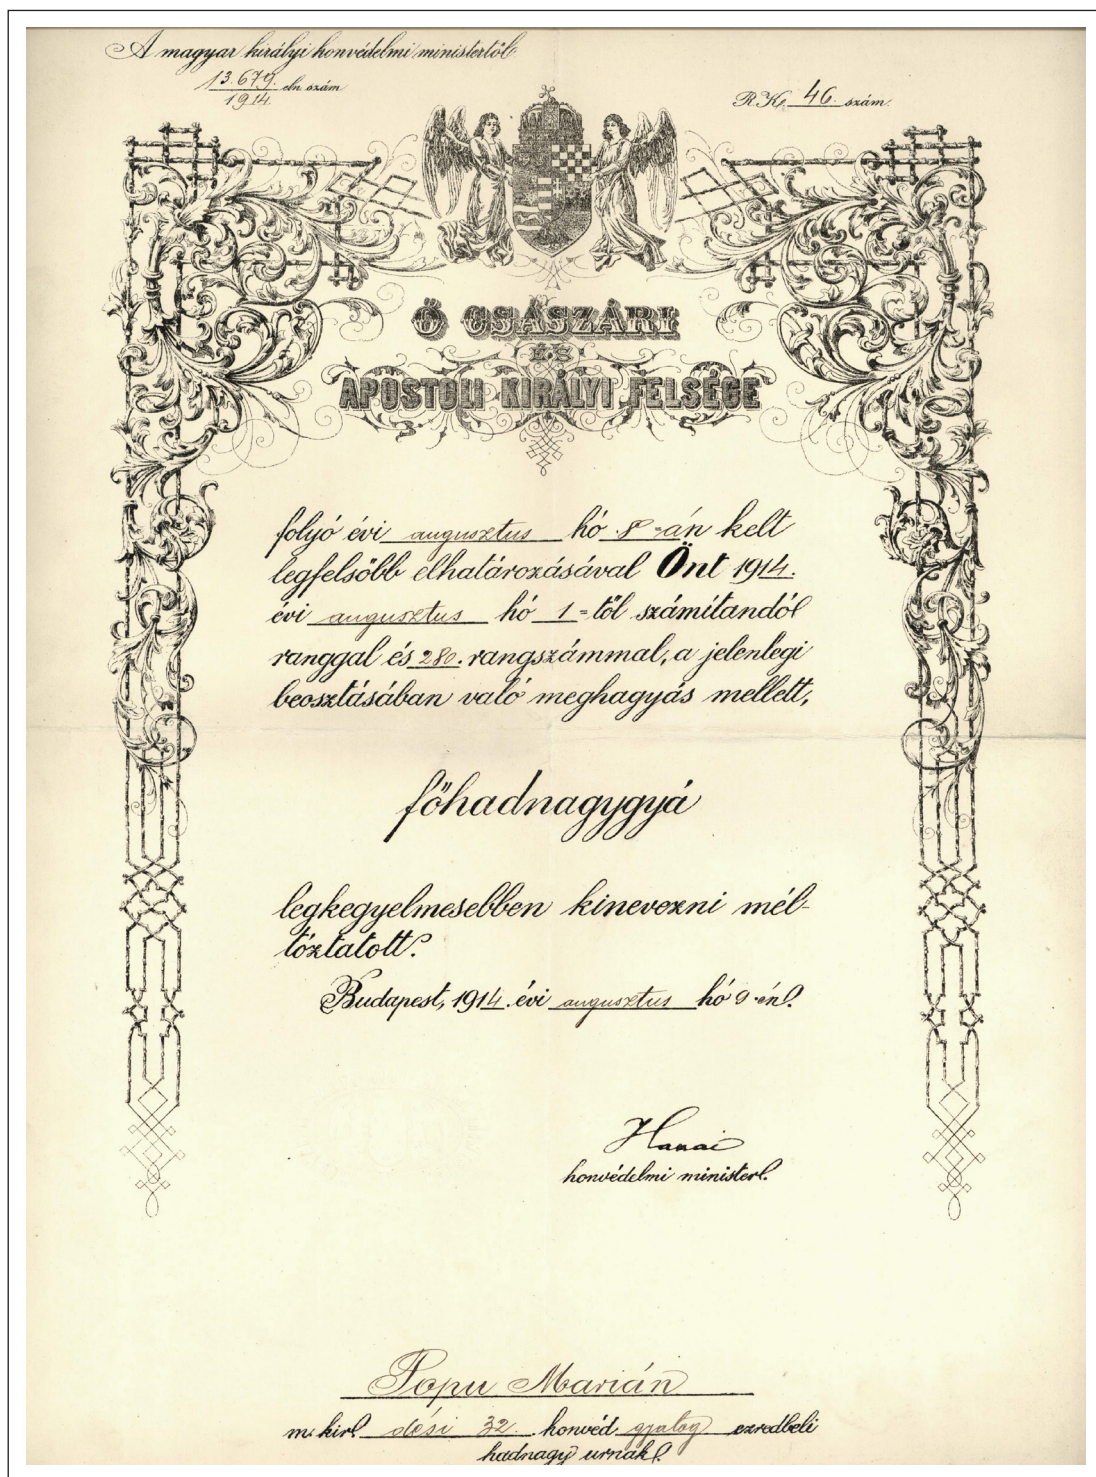 A magyar királyi honvédelmi ministertől.
13.679. eln. szám
1914.
R. K. 46. szám.
Ő CSÁSZÁRI
ÉS
APOSTOLI KIRÁLYI FELSÉGE
folyó évi augusztus hó 8-án kelt
legfelsőbb elhatározásával Önt 1914.
évi augusztus hó 1-től számítandó
ranggal és 280. rangszámmal, a jelenlegi
beosztásában való meghagyás mellett,
főhadnagygyá
legkegyelmesebben kinevezni mél-
tóztatott.
Budapest, 1914. évi augusztus hó 9-én.
honvédelmi minister.
Popu Marián
m. kir. dési 32. honvéd gyalog ezredbeli
hadnagy urnak.